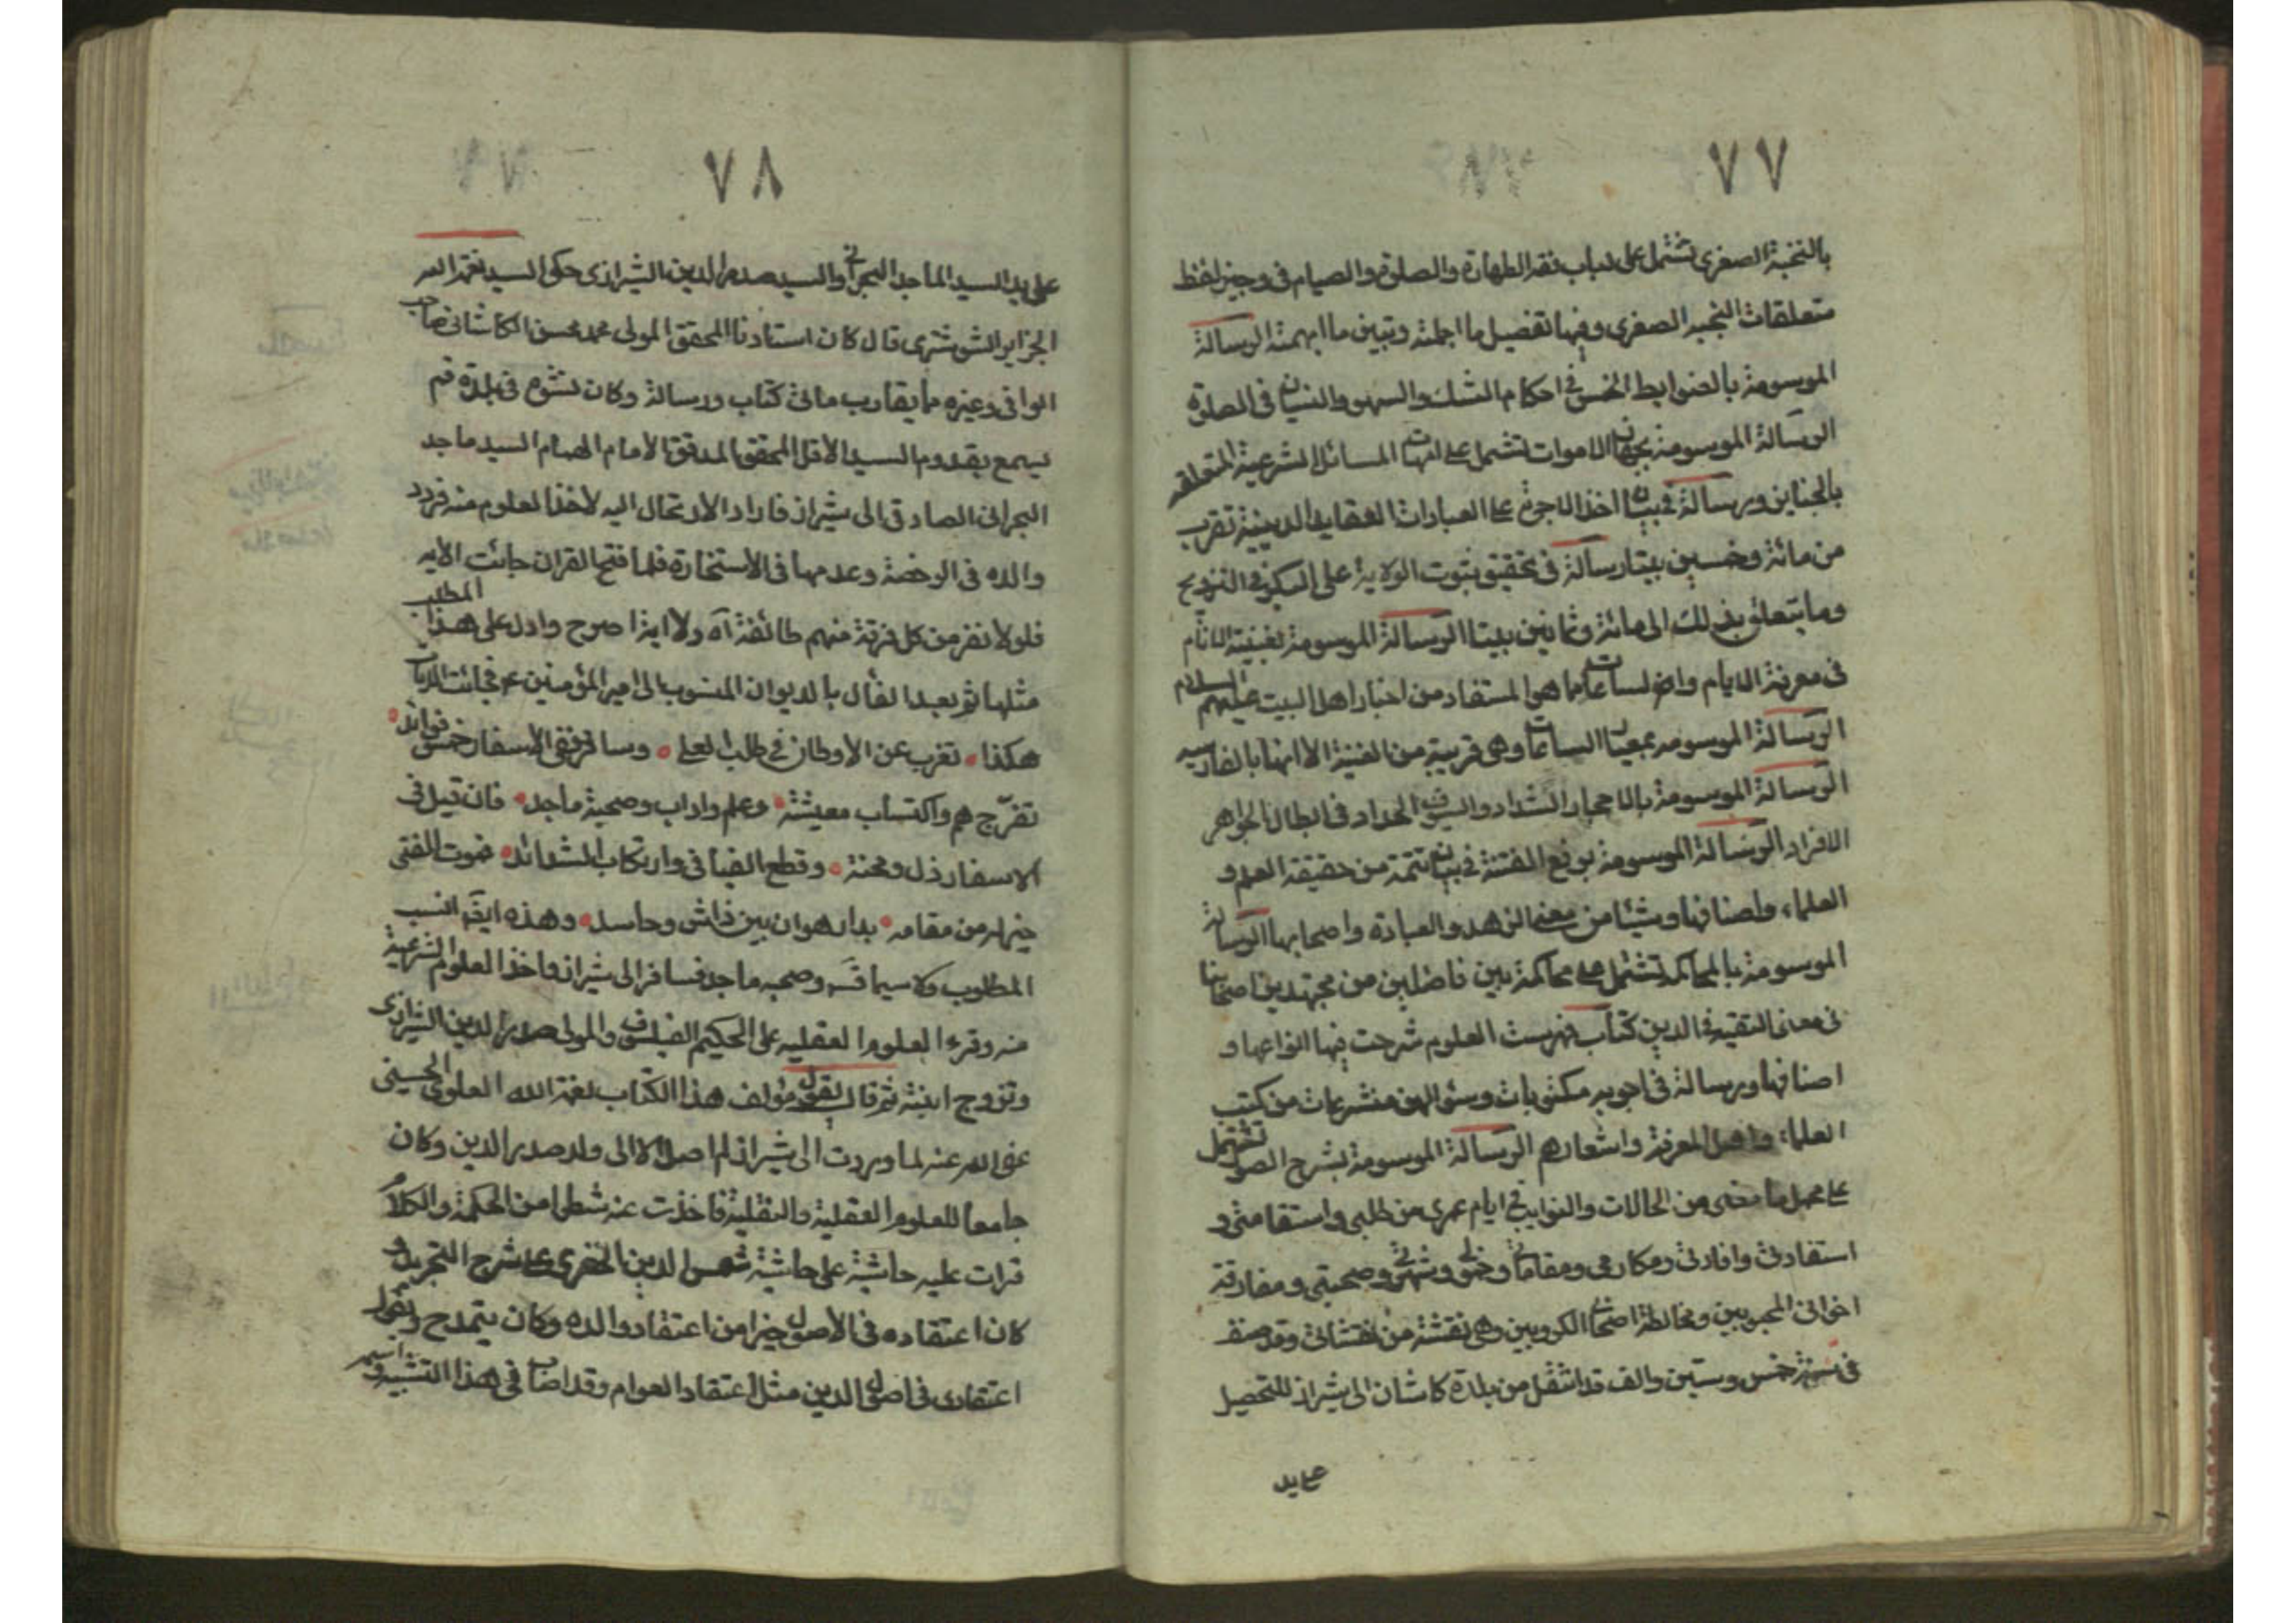 ٧٧
بالنخبة الصغرى تشتمل على لباب فقه الطهارة والصلوة والصيام فى وجيز لفظ
متعلقات النخبه الصغرى وفيها تفصيل ما اجملته وتبين ما ابهمته الرسالة
الموسومة بالضوابط الخمس فى احكام الشك والسهو والنسيان فى الصلوة
الرسالة الموسومة بجهاز الاموات تشتمل على امهات المسائل الشرعية المتعلقه
بالجنايز ورسالة فى بيان اخذ الاجرة على العبادات العقايد الدينية تقرب
من مائة وخمسين بيتا رسالة فى تحقيق ثبوت الولاية على البكر فى التزويج
وما يتعلق بذلك الى مائة وثمانين بيتا الرسالة الموسومة بغنية الانام
فى معرفة الايام والساعات مما هو المستفاد من اخبار اهل البيت عليهم السلام
الرسالة الموسومه بمعيار الساعات وهى قريبة من الغنية الا انها بالفارسيه
الرسالة الموسومة بالاحجار الشداد والسيوف الحداد فى ابطال الجواهر
الافراد الرسالة الموسومة برفع الفتنة فى بيان تتمة من حقيقة العلم و
العلماء واصنافها وشيئا من معنى الزهد والعبادة واصحابها الرسالة
الموسومة بالمحاكمة تشتمل على محاكمة بين فاضلين من مجتهدين اصحابنا
فى معنى التفقه فى الدين كتاب فهرست العلوم شرحت فيها انواعها و
اصنافها ورسالة فى اجوبه مكتوبات وسئوالهن منتشرعات من كتب
العلماء واهل المعرفة واشعارهم الرسالة الموسومة بشرح الصدر تشتمل
على مجمل ما مضى من الحالات والنوايب فى ايام عمرى من طلبى واستقامتى و
استفادتى وافادتى ومكارهى ومقاماتى وخلوتى وشهرتى وصحبتى ومفارقة
اخوانى المحبوبين ومخالطة اصحاب الكروبين وهى نفثة من نفثاتى وقد
فى سنة خمس وستين والف قد انتقل من بلدة كاشان الى شيراز للتحصيل
على يد
٧٨
على يد السيد الماجد البحرانى والسيد صدر الدين الشيرازى حكى السيد نعمة الله
الجزاير الشوشترى قال كان استادنا المحقق المولى محمد محسن الكاشانى صاحب
الوافى وغيره مما يقارب مائتى كتاب ورسالة وكان نشوه فى بلدة قم
فسمع بقدوم السيد الاقل المحقق المدقق الامام الهمام السيد ماجد
البحرانى الصادقى الى شيراز فاراد الارتحال اليه لاخذ العلوم منه فردد
والده فى الرخصة وعدمها فى الاستخارة فلما فتح القران جائت الايه
فلولا نفر من كل فرقة منهم طائفة آه ولا اية اصرح وادل على هذا المطلب
مثلها ثم بعد تفأل بالديوان المنسوب الى امير المؤمنين ع فجائت الابيات
هكذا تغرب عن الاوطان فى طلب العلى وسافر ففى الاسفار خمس فوائد
تفرّج هم واكتساب معيشة وعلم واداب وصحبة ماجد فان قيل فى
الاسفار ذل ومحنة وقطع الفيافى وارتكاب الشدائد فموت الفتى
خير له من مقامه بدار هوان بين واش وحاسد وهذه ايضا انسب
المطلوب ولا سيما قوله وصحبه ماجد فسافر الى شيراز واخذ العلوم الشرعية
منه وقرء العلوم العقليه على الحكيم الفيلسوف المولى صدر الدين الشيرازى
وتزوج ابنته ثم قال يقول مؤلف هذا الكتاب نعمة الله العلوى الحسينى
عفى الله عنه لما وردت الى شيراز لم اصل الا الى ولد صدر الدين وكان
جامعا للعلوم العقلية والنقلية فاخذت عنه شطرا من الحكمة والكلام
قرات عليه حاشية على حاشية شمس الدين الخفرى على شرح التجريد و
كان اعتقاده فى الاصول خيرا من اعتقاد والده وكان يتمدح ويقول
اعتقادى فى اصول الدين مثل اعتقاد العوام وقد اصاب فى هذا التشبيه و